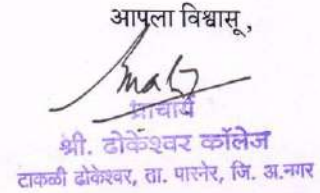 आपला विश्वासू,
प्राचार्य
श्री. ढोकेश्वर कॉलेज
टाकळी ढोकेश्वर, ता. पारनेर, जि. अ.नगर